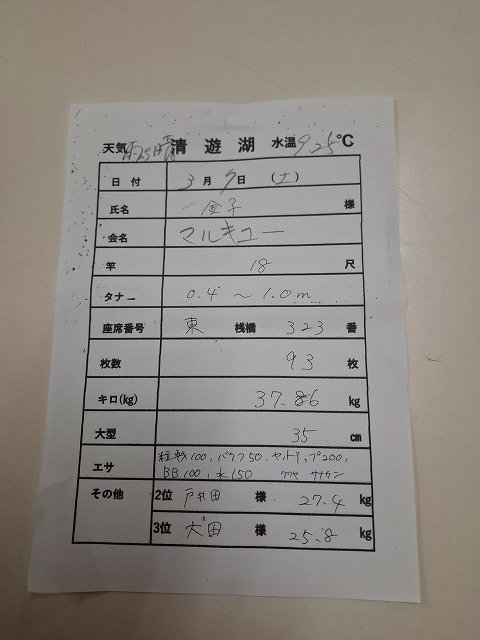 天気 清遊湖 水温 9.25℃
日付 3月7日 (土)
氏名 金子 様
会名 マルキユー
竿 18 尺
タナー 0.4 ~ 1.0m
座席番号 東 桟橋 323 番
枚数 93 枚
キロ(kg) 37.86 kg
大型 35 cm
エサ 粒戦100, バラケ50, セットアップ200,
BB100, 水150
その他 2位 戸井田 様 27.4 kg
3位 大田 様 25.8 kg